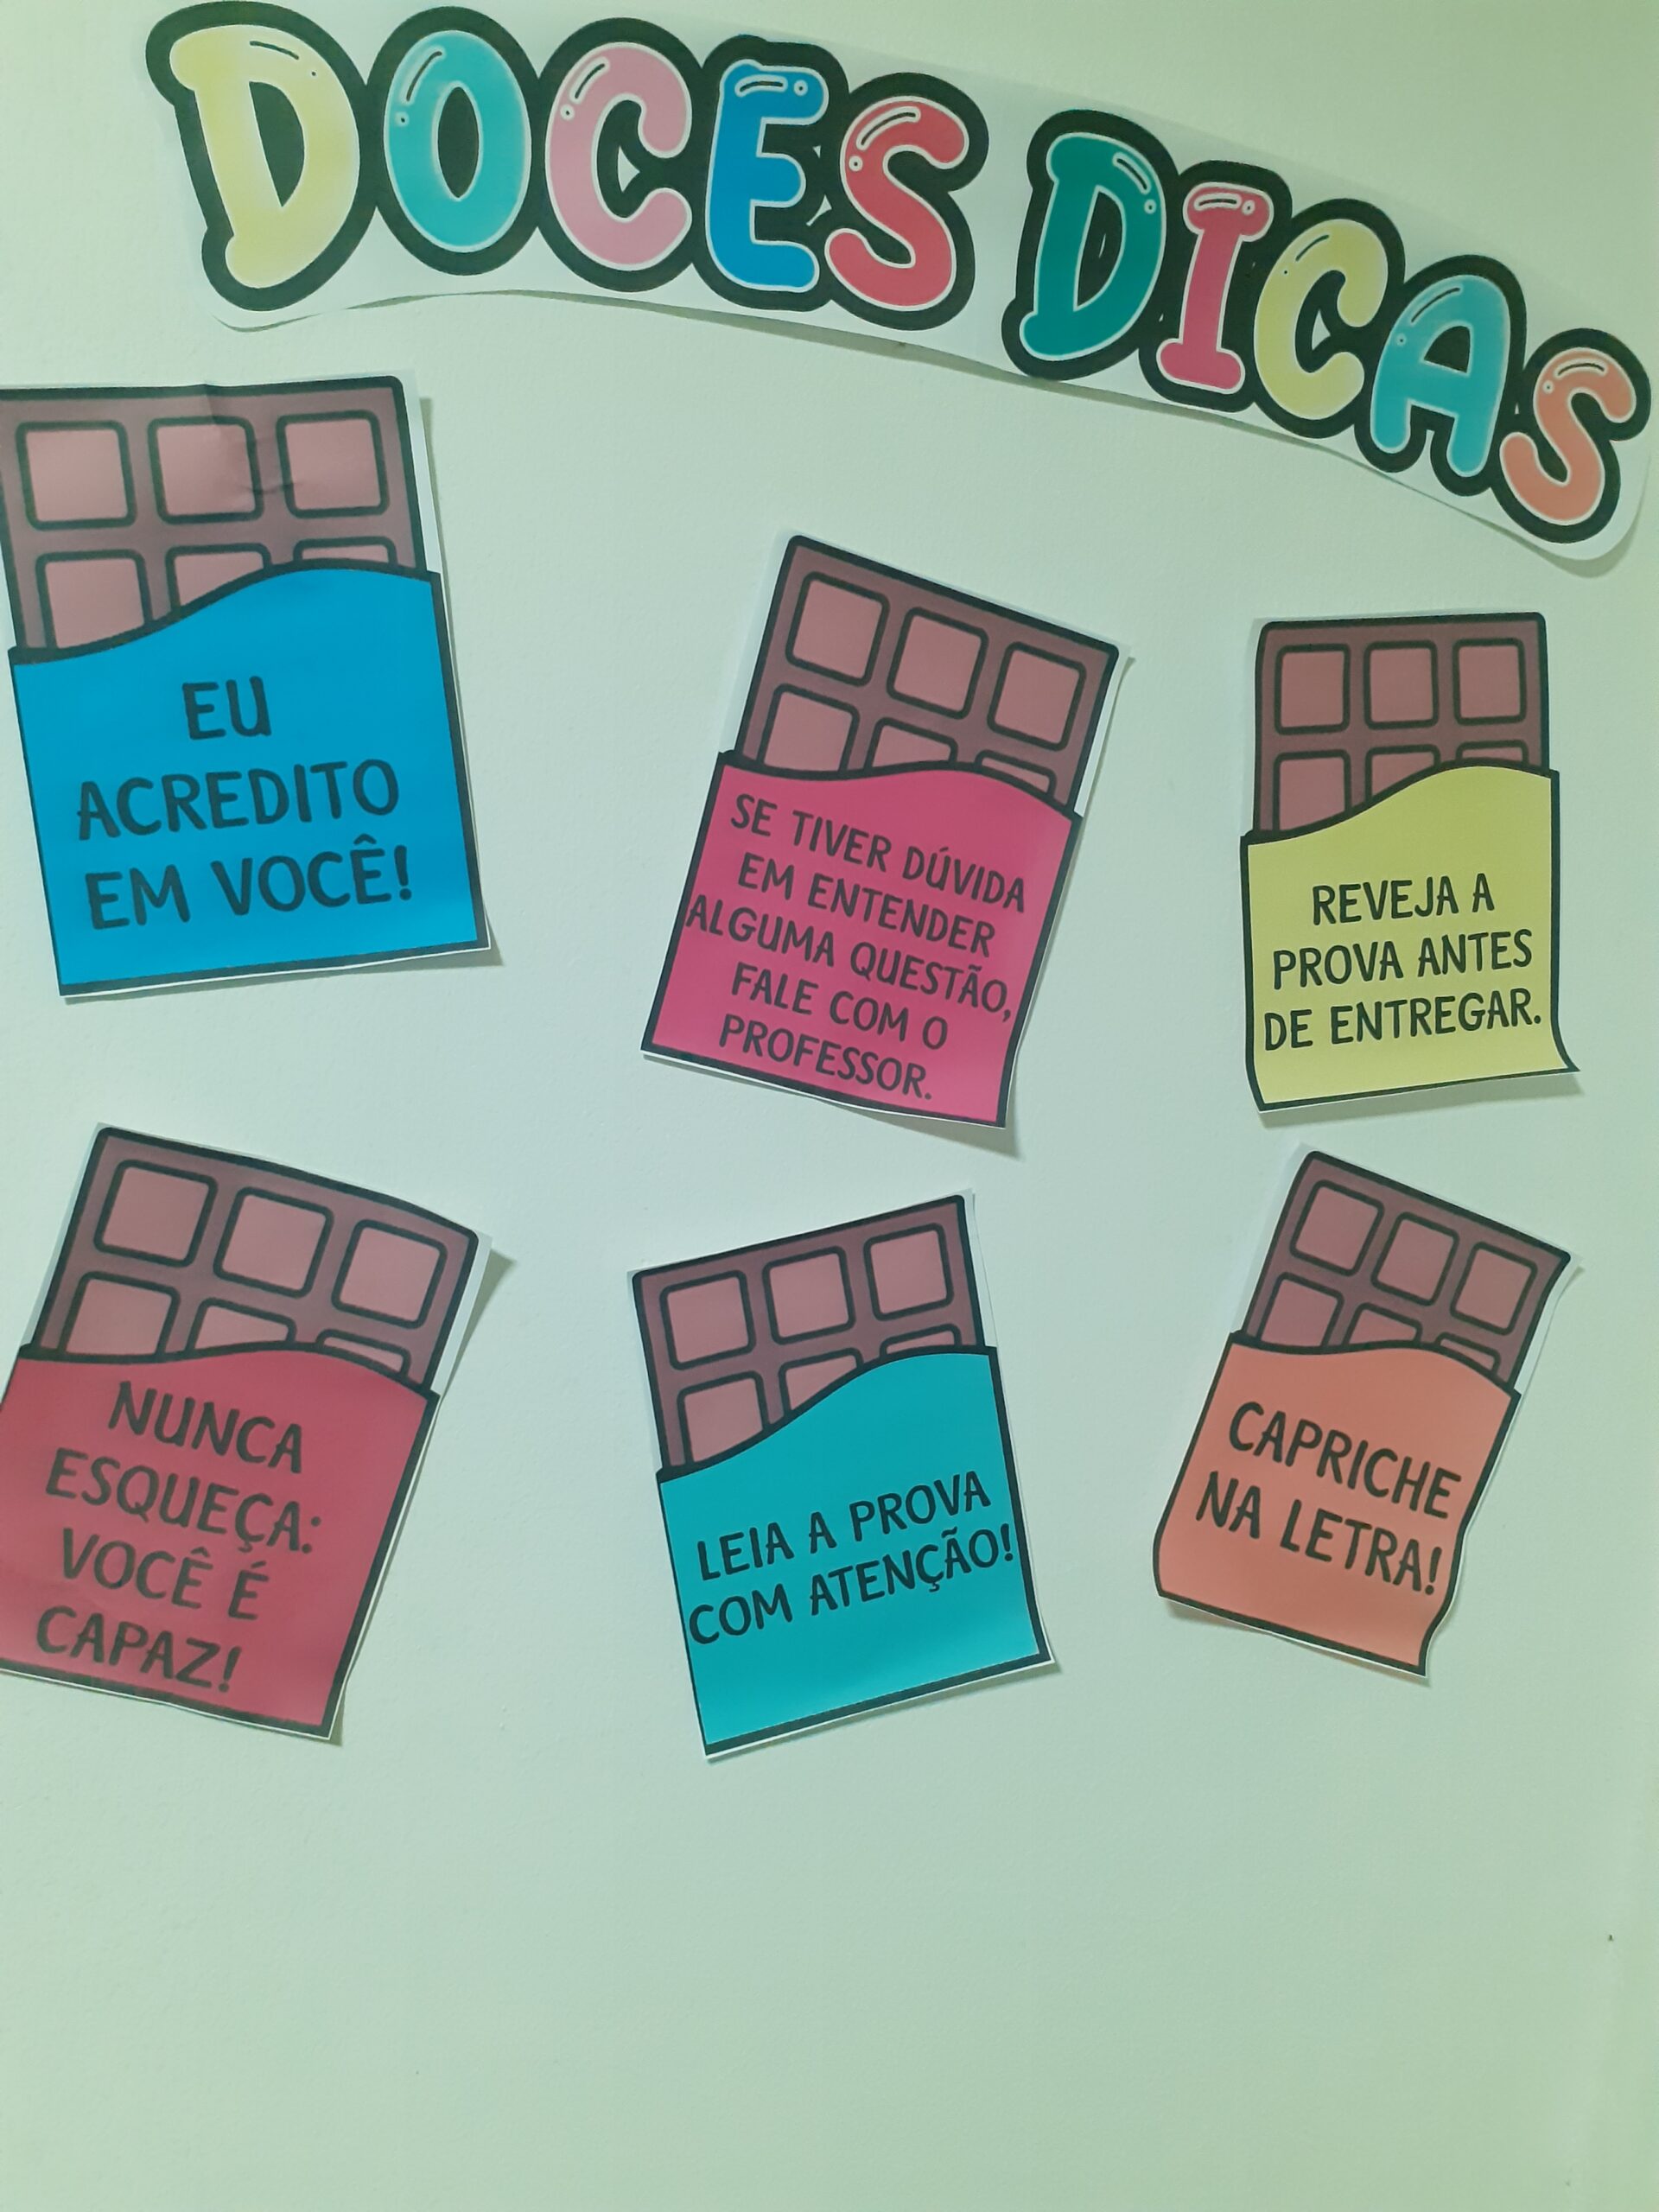 DOCES DICAS
EU
ACREDITO
EM VOCÊ!
SE TIVER DÚVIDA
EM ENTENDER
ALGUMA QUESTÃO,
FALE COM O
PROFESSOR.
REVEJA A
PROVA ANTES
DE ENTREGAR.
NUNCA
ESQUEÇA:
VOCÊ É
CAPAZ!
LEIA A PROVA
COM ATENÇÃO!
CAPRICHE
NA LETRA!